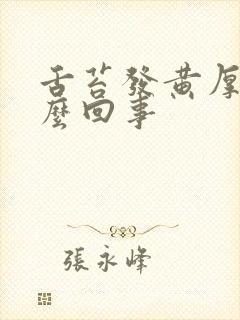 舌苔發黃厚
麼回事
張永峰